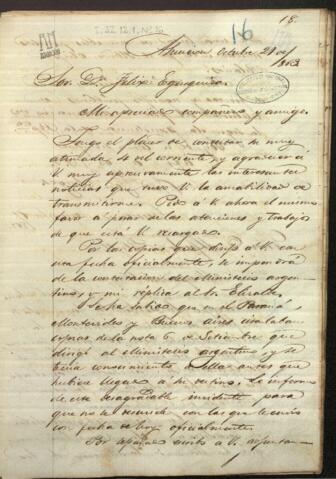 16
18.
Asuncion, Octubre 21 de
1863
Sor. Dn. Felix Egusquiza
Mi apreciado compatriota y amigo.
Tengo el placer de contestar su muy
atentada 4 del corriente, y agradecer á
V. muy sinceramente las interesantes
noticias que tuvo V. la amabilidad de
transmitirme. Pido á V. ahora el mismo
favor á pesar de las atenciones y trabajos
de que está V. recargado.
Por las copias que dirijo á V. con
esta fecha oficialmente, se impondrá
de la contestacion del Ministerio argen-
tino, y mi réplica al Sr. Elizalde.
Se ha sabido que en el Paraná,
Montevideo y Buenos aires circulaban
copias de la nota 6 de Setiembre que
dirigí al Ministerio argentino, y se
tenia conocimiento de ella antes que
hubiese llegado á su destino. Le informo
de este desagradable incidente para
que no se confunda con las que le envio
con fecha de hoy oficialmente.
Por separado escribo á V. adjuntan-